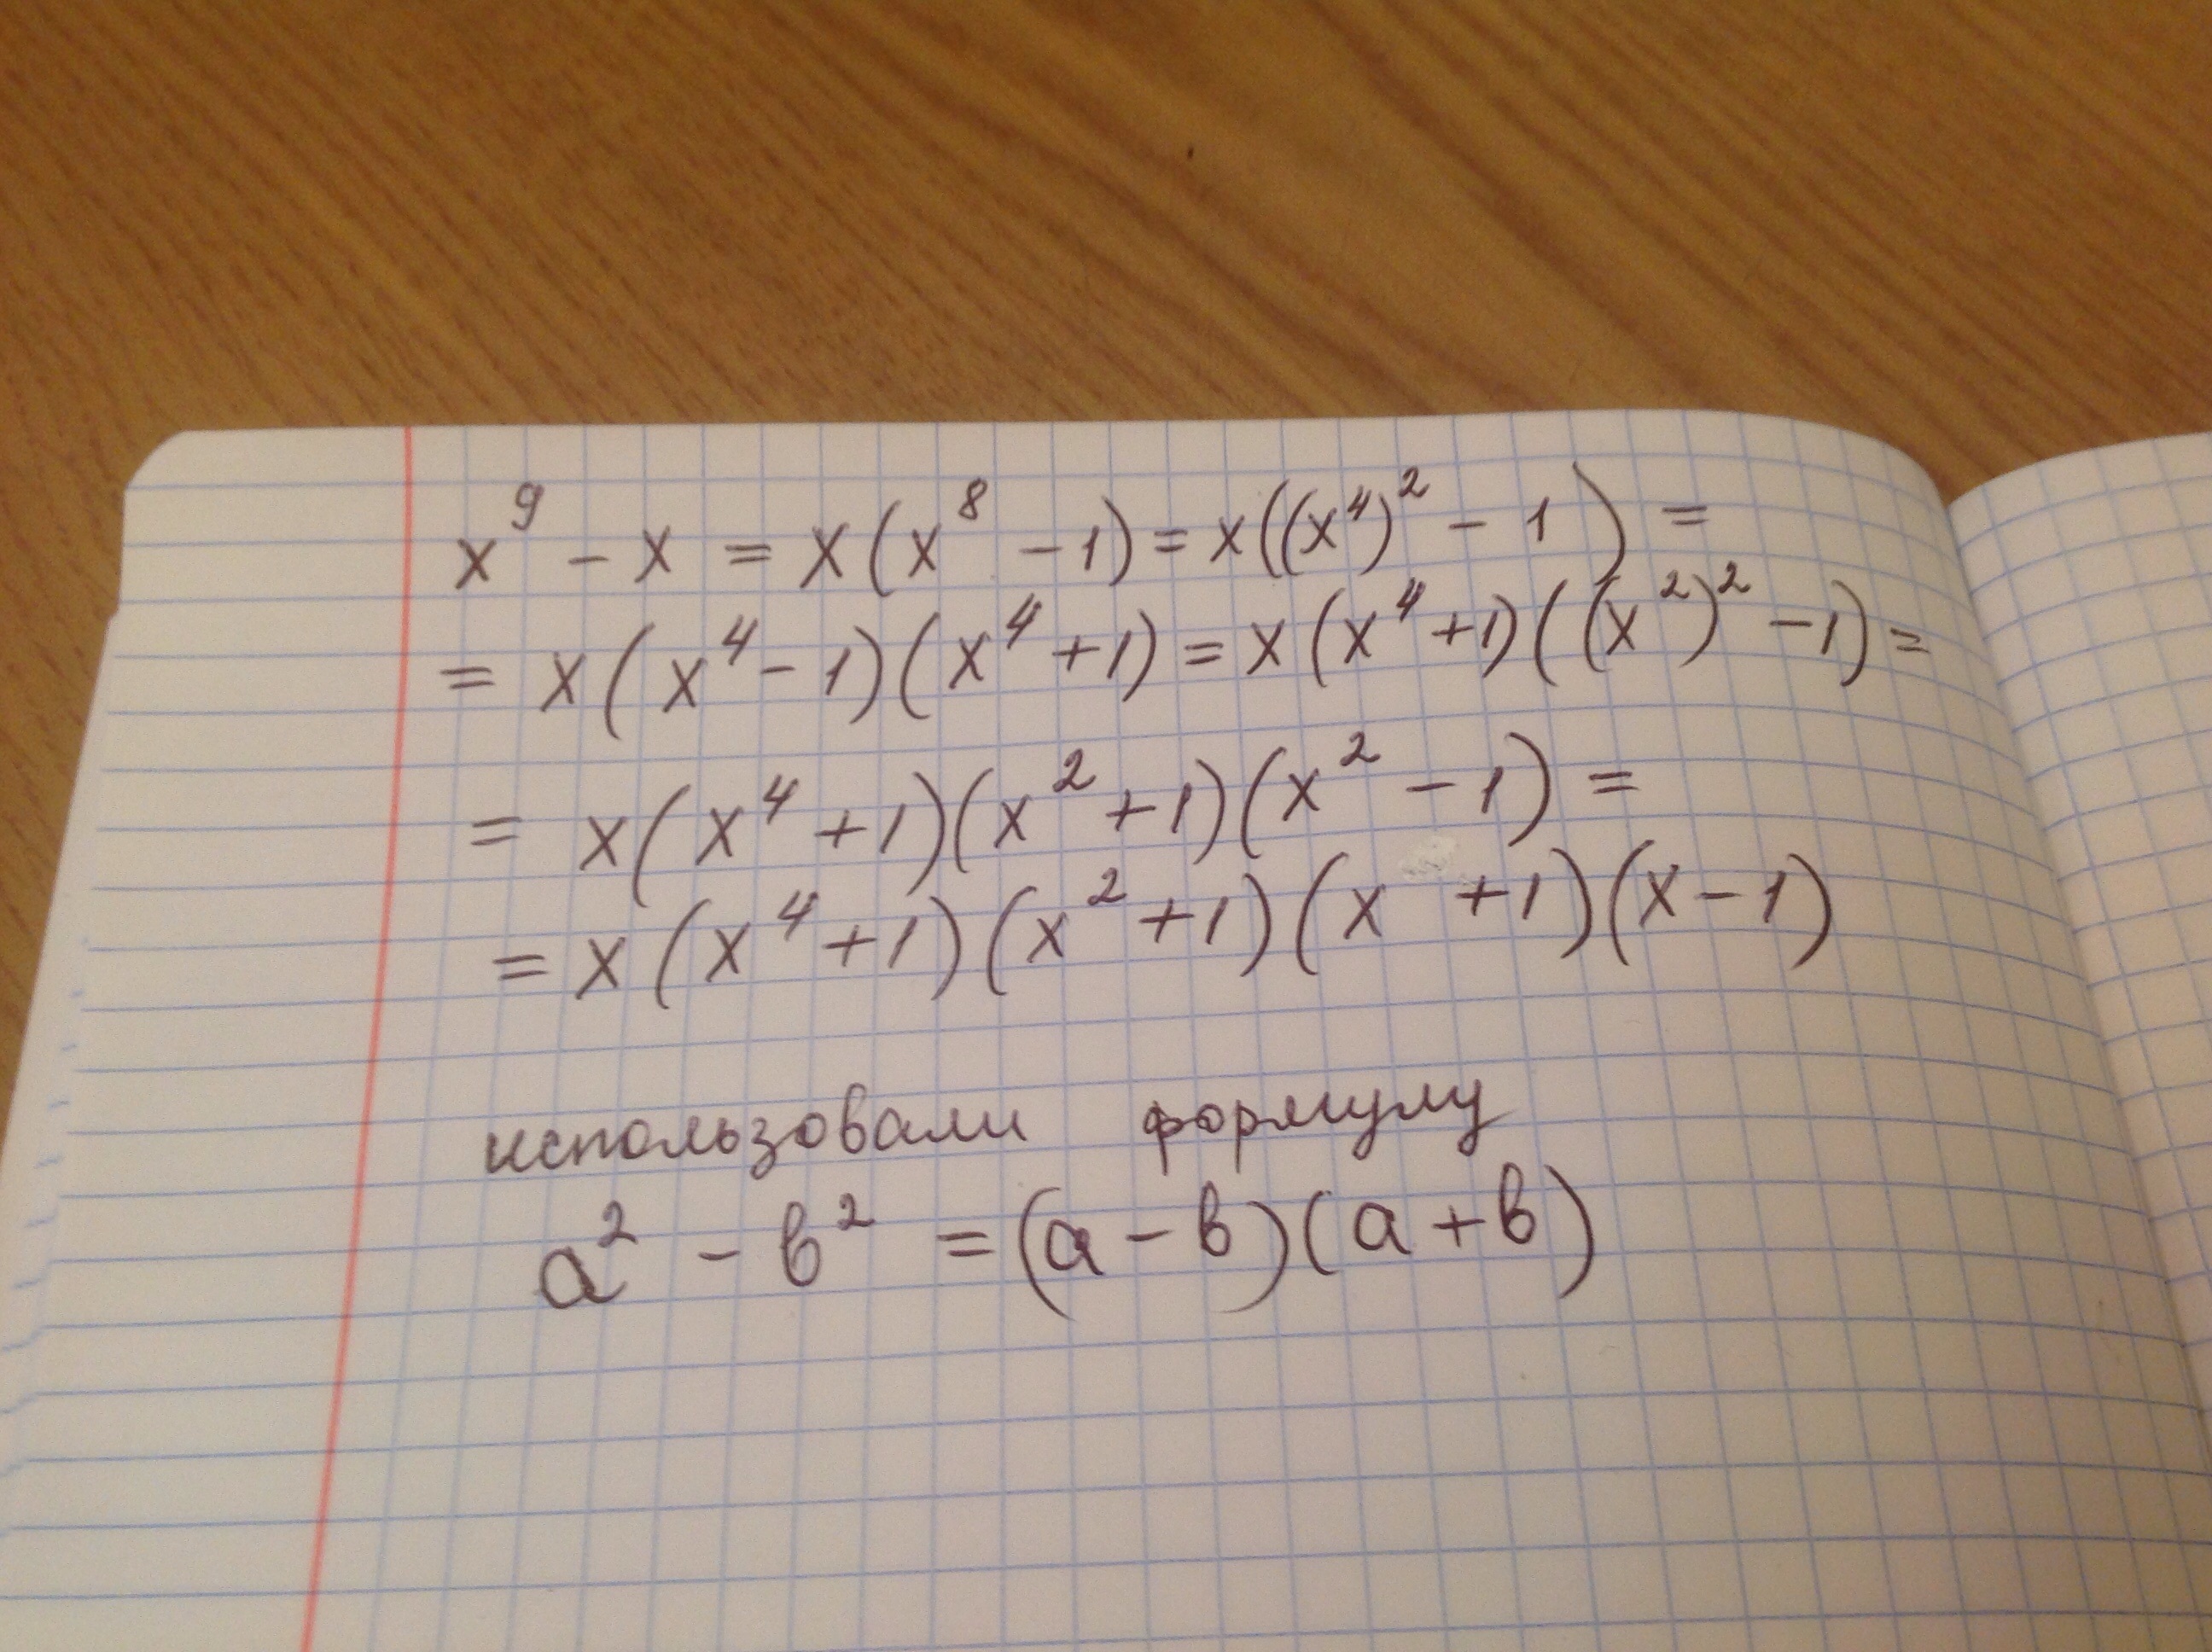 x⁹ - x = x(x⁸ - 1) = x((x⁴)² - 1) =
= x(x⁴ - 1)(x⁴ + 1) = x(x⁴ + 1)((x²)² - 1) =
= x(x⁴ + 1)(x² + 1)(x² - 1) =
= x(x⁴ + 1)(x² + 1)(x + 1)(x - 1)
использовали формулу
a² - в² = (a - в)(a + в)